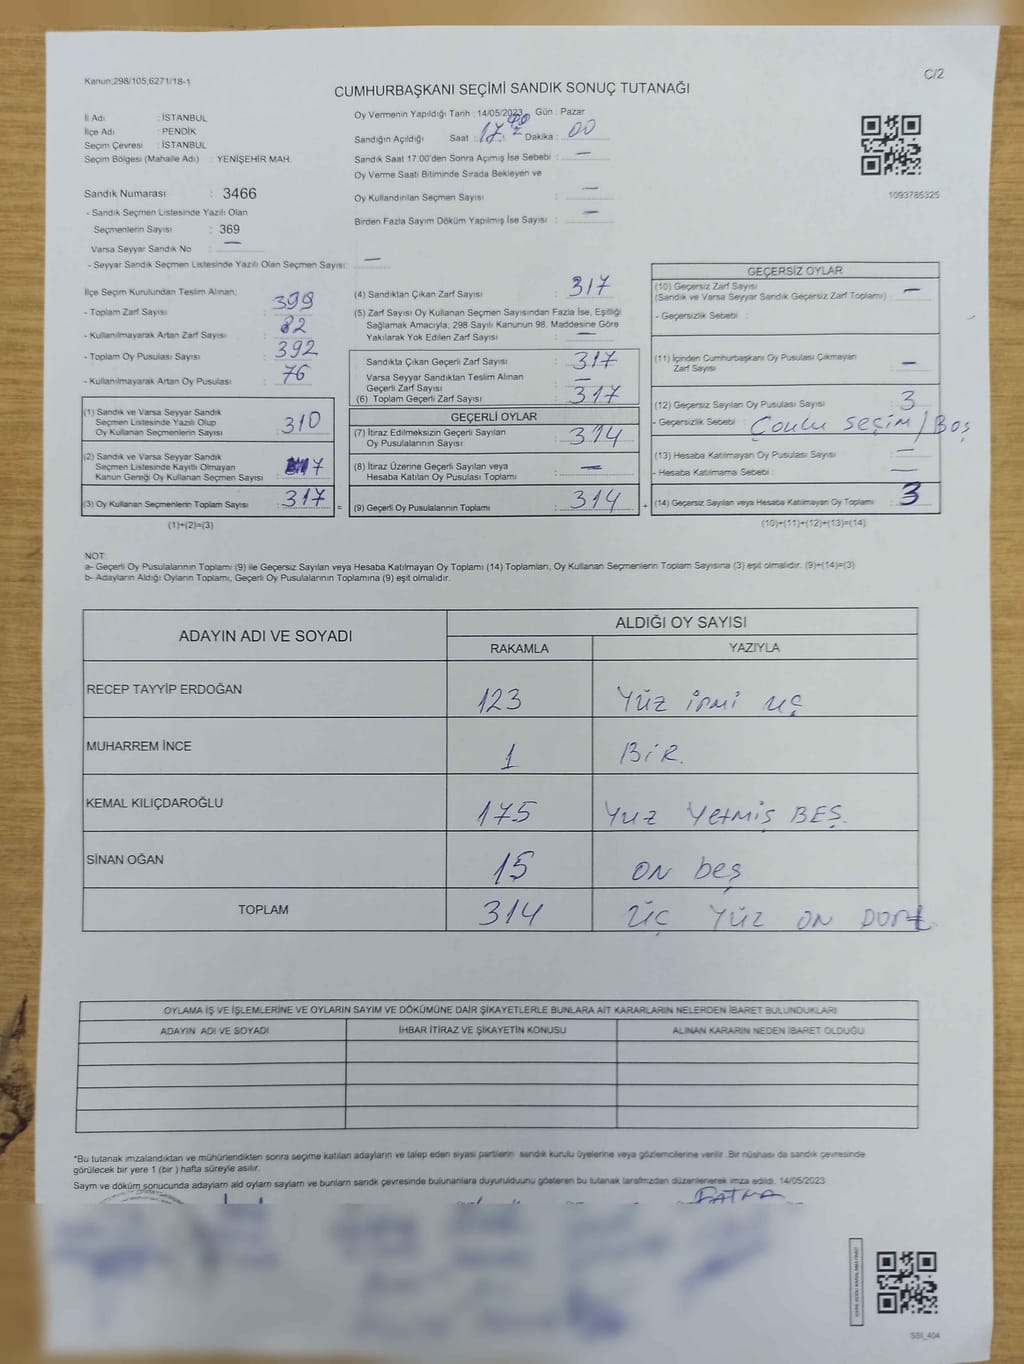 Kanun:298/105;6271/18-1
C/2
CUMHURBAŞKANI SEÇİMİ SANDIK SONUÇ TUTANAĞI
İl Adı : İSTANBUL
İlçe Adı : PENDİK
Seçim Çevresi : İSTANBUL
Seçim Bölgesi (Mahalle Adı) : YENİŞEHİR MAH.
Sandık Numarası : 3466
- Sandık Seçmen Listesinde Yazılı Olan
Seçmenlerin Sayısı : 369
Varsa Seyyar Sandık No : —
- Seyyar Sandık Seçmen Listesinde Yazılı Olan Seçmen Sayısı: —
Oy Vermenin Yapıldığı Tarih : 14/05/2023 Gün : Pazar
Sandığın Açıldığı Saat : 17 Dakika : 00
Sandık Saat 17:00'den Sonra Açımış İse Sebebi : —
Oy Verme Saati Bitiminde Sırada Bekleyen ve
Oy Kullandırılan Seçmen Sayısı : —
Birden Fazla Sayım Döküm Yapılmış İse Sayısı : —
1093785325
İlçe Seçim Kurulundan Teslim Alınan;
- Toplam Zarf Sayısı : 399
- Kullanılmayarak Artan Zarf Sayısı : 82
- Toplam Oy Pusulası Sayısı : 392
- Kullanılmayarak Artan Oy Pusulası : 76
(1) Sandık ve Varsa Seyyar Sandık
Seçmen Listesinde Yazılı Olup
Oy Kullanan Seçmenlerin Sayısı : 310
(2) Sandık ve Varsa Seyyar Sandık
Seçmen Listesinde Kayıtlı Olmayan
Kanun Gereği Oy Kullanan Seçmen Sayısı : 7
(3) Oy Kullanan Seçmenlerin Toplam Sayısı : 317
(1)+(2)=(3)
(4) Sandıktan Çıkan Zarf Sayısı : 317
(5) Zarf Sayısı Oy Kullanan Seçmen Sayısından Fazla İse, Eşitliği
Sağlamak Amacıyla; 298 Sayılı Kanunun 98. Maddesine Göre
Yakılarak Yok Edilen Zarf Sayısı : —
Sandıkta Çıkan Geçerli Zarf Sayısı : 317
Varsa Seyyar Sandıktan Teslim Alınan
Geçerli Zarf Sayısı : —
(6) Toplam Geçerli Zarf Sayısı : 317
GEÇERLİ OYLAR
(7) İtiraz Edilmeksizin Geçerli Sayılan
Oy Pusulalarının Sayısı : 314
(8) İtiraz Üzerine Geçerli Sayılan veya
Hesaba Katılan Oy Pusulası Toplamı : —
= (9) Geçerli Oy Pusulalarının Toplamı : 314 +
GEÇERSİZ OYLAR
(10) Geçersiz Zarf Sayısı
(Sandık ve Varsa Seyyar Sandık Geçersiz Zarf Toplamı) : —
- Geçersizlik Sebebi :
(11) İçinden Cumhurbaşkanı Oy Pusulası Çıkmayan
Zarf Sayısı : —
(12) Geçersiz Sayılan Oy Pusulası Sayısı : 3
- Geçersizlik Sebebi : Çoklu seçim/Boş
(13) Hesaba Katılmayan Oy Pusulası Sayısı : —
- Hesaba Katılmama Sebebi : —
(14) Geçersiz Sayılan veya Hesaba Katılmayan Oy Toplamı : 3
(10)+(11)+(12)+(13)=(14)
NOT:
a- Geçerli Oy Pusulalarının Toplamı (9) ile Geçersiz Sayılan veya Hesaba Katılmayan Oy Toplamı (14) Toplamları, Oy Kullanan Seçmenlerin Toplam Sayısına (3) eşit olmalıdır. (9)+(14)=(3)
b- Adayların Aldığı Oyların Toplamı, Geçerli Oy Pusulalarının Toplamına (9) eşit olmalıdır.
ADAYIN ADI VE SOYADI
ALDIĞI OY SAYISI
RAKAMLA YAZIYLA
RECEP TAYYİP ERDOĞAN 123 Yüz irmi üç
MUHARREM İNCE 1 BİR.
KEMAL KILIÇDAROĞLU 175 Yuz Yetmiş BEŞ.
SİNAN OĞAN 15 ON beş
TOPLAM 314 üç YÜZ ON DORt.
OYLAMA İŞ VE İŞLEMLERİNE VE OYLARIN SAYIM VE DÖKÜMÜNE DAİR ŞİKAYETLERLE BUNLARA AİT KARARLARIN NELERDEN İBARET BULUNDUKLARI
ADAYIN ADI VE SOYADI İHBAR İTİRAZ VE ŞİKAYETİN KONUSU ALINAN KARARIN NEDEN İBARET OLDUĞU
*Bu tutanak imzalandıktan ve mühürlendikten sonra seçime katılan adayların ve talep eden siyasi partilerin sandık kurulu üyelerine veya gözlemcilerine verilir. Bir nüshası da sandık çevresinde
görülecek bir yere 1 (bir ) hafta süreyle asılır.
Sayım ve döküm sonucunda adayların ald oyların sayıları ve bunların sandık çevresinde bulunanlara duyurulduunu gösteren bu tutanak tarafımızdan düzenlenerek imza edildi. 14/05/2023
FATMA
SSI_404